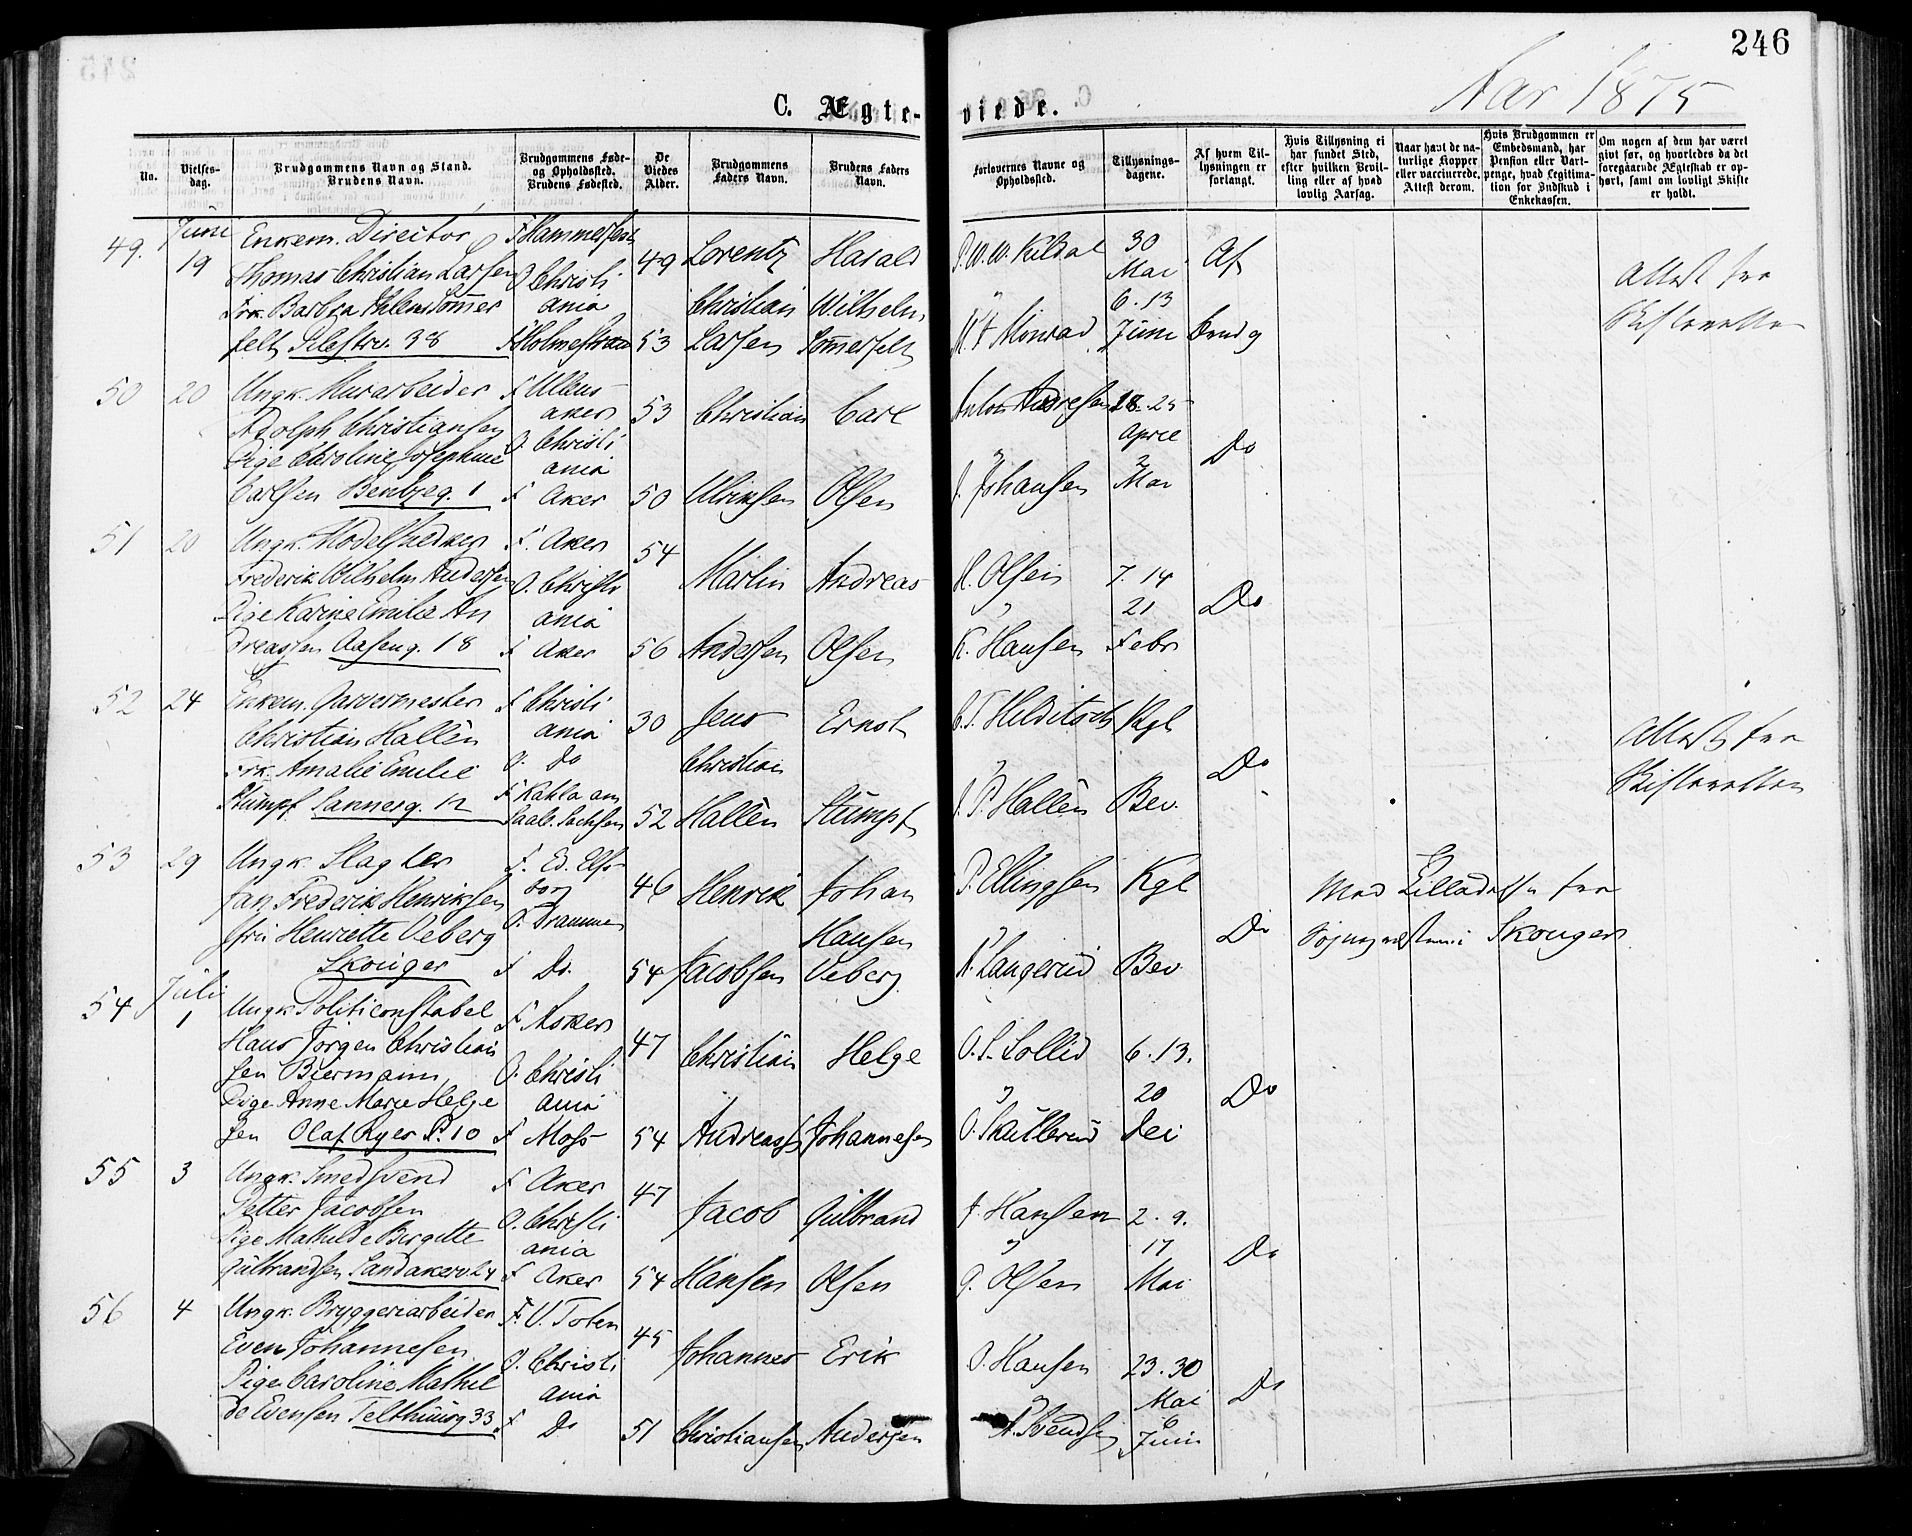 246
Aar 1875
C. Ægte- viede.
No.
Vielses-
dag.
Brudgommens Navn og Stand.
Brudens Navn.
Brudgommens Føde-
og Opholdssted.
Brudens Fødested.
De
Viedes
Alder.
Brudgommens
Faders Navn.
Brudens Faders
Navn.
Forlovernes Navne og
Opholdssted.
Tillysnings-
dagene.
Af hvem Til-
lysningen er
forlangt.
Hvis Tillysning ei
har fundet Sted,
efter hvilken Bevil-
ling eller af hvad
lovlig Aarsag.
Naar havt de na-
turlige Kopper
eller vaccinerede.
Attest derom.
Hvis Brudgommen er
Embedsmand, har
Pension eller Vart-
penge, hvad Legitima-
tion for Indskud i
Enkekassen.
Om nogen af dem har været
givt før, og hvorledes da det
foregaaende Ægteskab er op-
hørt, samt om lovligt Skifte
er holdt.
49.
Juni
19
Enkem. Director
Thomas Christian Larsen
Frk. Barbra Sommer
felt Pilestr. 38
F Hammerfest
O Christi
ania
F Holmestrand
49
53
Lorentz
Christian
Larsen
Harald
Wilhelm
Sommerfelt
P. W. W. Kildal
"
Monrad
30
Mai
6. 13
Juni
Af
Brudg
Attest fra
Skifteretten
50
20
Ungk. Murarbeider
Adolph Christiansen
Pige Caroline Josephine
Carlsen 1
F Ullens-
aker
O. Christi
ania
F Aker
53
50
Christian
Ulriksen
Carl
Olsen
Anton Andresen
"
J. Johansen
18. 25
April
2
Mai
Do
51
20
Ungk.
Frederik Wilhelm Andersen
Pige Karine Emilie An
dreassen Aaseng. 18
F. Aker
O. Christi
ania
F Aker
54
56
Martin
Andersen
Andreas
Olsen
H. Olsen
"
K. Hansen
7. 14
21
Febr
Do
52
24
Enkem. Garvermester
Christian Hallèn
Frk. Amalie Emilie
Stumpf Sannerg. 12
F Christi
ania
O. Do
F Kahla am
Saale Sachsen
30
52
Jens
Christian
Hallèn
Ernst
Stumpf
C. T. Helditsch
"
J. P. Hallèn
Kgl
Bev.
Do
Attest fra
Skifteretten
53
29
Ungk. Slagter
Jan Frederik Henriksen
Jfru Henriette Oeberg
Skouger
F. Ed. Elfs-
borg
O. Drammen
F Do.
46
54
Henrik
Jacobsen
Johan
Hansen
Oeberg
P. Ellingsen
"
K. Langerud
Kgl
Bev.
Do
Med Tilladelse fra
Sognepræsten i Skouger
54
Juli
1
Ungk. Politiconstabel
Hans Jörgen Christian
sen Biermann
Pige Anne Marie Helge
sen Olaf Ryes Pl. 10
F. Asker
O. Christi
ania
F Moss
47
54
Christian
Andreas
Helge
Johannesen
O. S. Sollid
"
O. Skullerud
6. 13.
20
Do
55
3
Ungk. Smedsvend
Petter Jacobsen
Pige Mathilde Birgitte
Gulbrandsen Sandakerv. 24
F Aker
O. Christi
ania
F Aker
47
54
Jacob
Hansen
Gulbrand
Olsen
J. Hansen
"
G. Olsen
2. 9.
17
Mai
Do
56
4
Ungk. Bryggeriarbeider
Even Johannesen
Pige Caroline Mathil
de Evensen Telthusg 33
F. V. Toten
O. Christi
ania
F. Do
45
51
Johannes
Christiansen
Erik
Andersen
O. Hansen
"
A. Svendsen
23. 30
Mai
6
Juni
Do